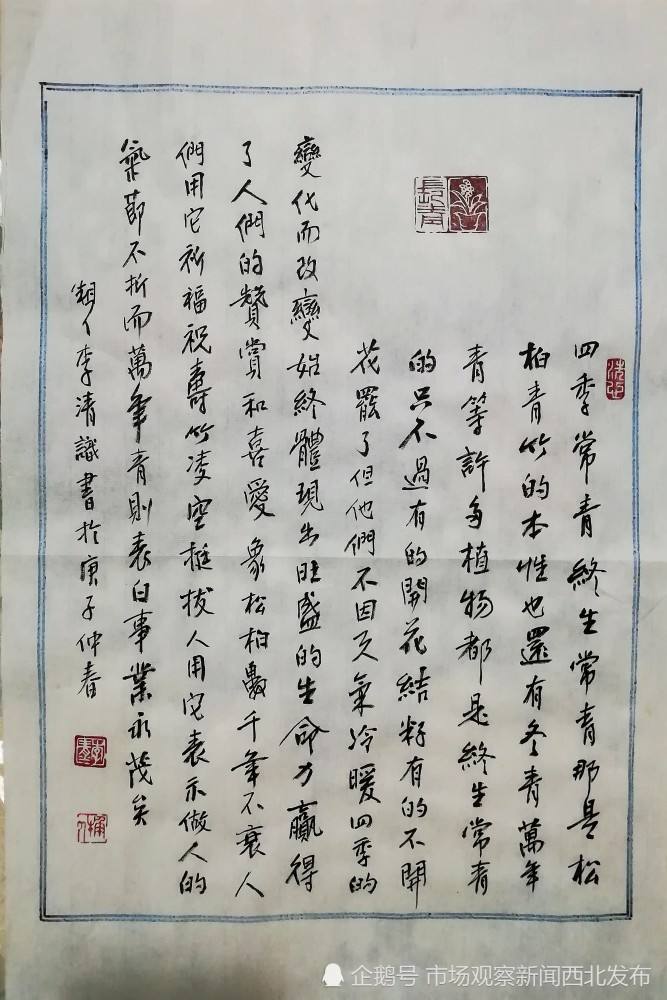 長青
四季常青終生常青那是松
柏青竹的本性也還有冬青萬年
青等許多植物都是終生常青
的只不過有的開花結籽有的不開
花罷了但他們不因天氣冷暖四季的
變化而改變始終體現出旺盛的生命力贏得
了人們的贊賞和喜愛象松柏數千年不衰人
們用它祈福祝壽竹凌空挺拔人用它表示做人的
氣節不折而萬年青則表白事業永茂矣
李清識書於庚子仲春
企鹅号 市场观察新闻西北发布